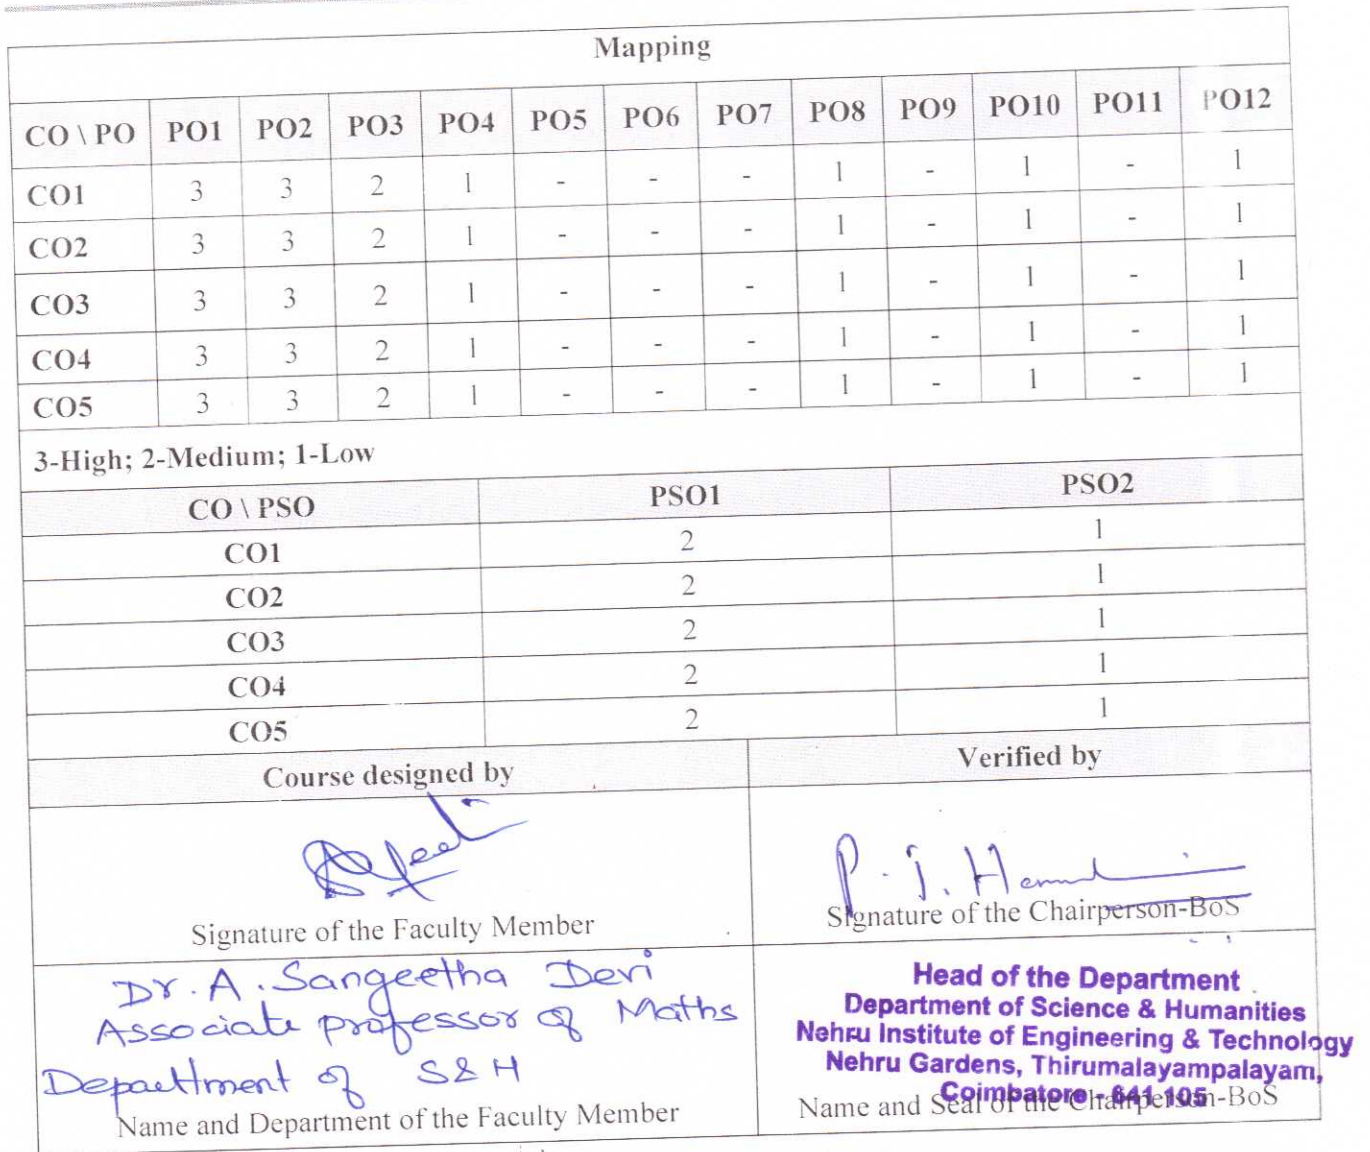 Mapping
CO \ PO PO1 PO2 PO3 PO4 PO5 PO6 PO7 PO8 PO9 PO10 PO11 PO12
CO1 3 3 2 1 - - - 1 - 1 - 1
CO2 3 3 2 1 - - - 1 - 1 - 1
CO3 3 3 2 1 - - - 1 - 1 - 1
CO4 3 3 2 1 - - - 1 - 1 - 1
CO5 3 3 2 1 - - - 1 - 1 - 1
3-High; 2-Medium; 1-Low
CO \ PSO PSO1 PSO2
CO1 2 1
CO2 2 1
CO3 2 1
CO4 2 1
CO5 2 1
Course designed by Verified by
P. J.
Signature of the Faculty Member Signature of the Chairperson-BoS
Dr. A. Sangeetha Devi
Associate professor of Maths
Department of S & H
Name and Department of the Faculty Member
Head of the Department
Department of Science & Humanities
Nehru Institute of Engineering & Technology
Nehru Gardens, Thirumalayampalayam,
Coimbatore - 641 105
Name and Seal of the Chairperson-BoS